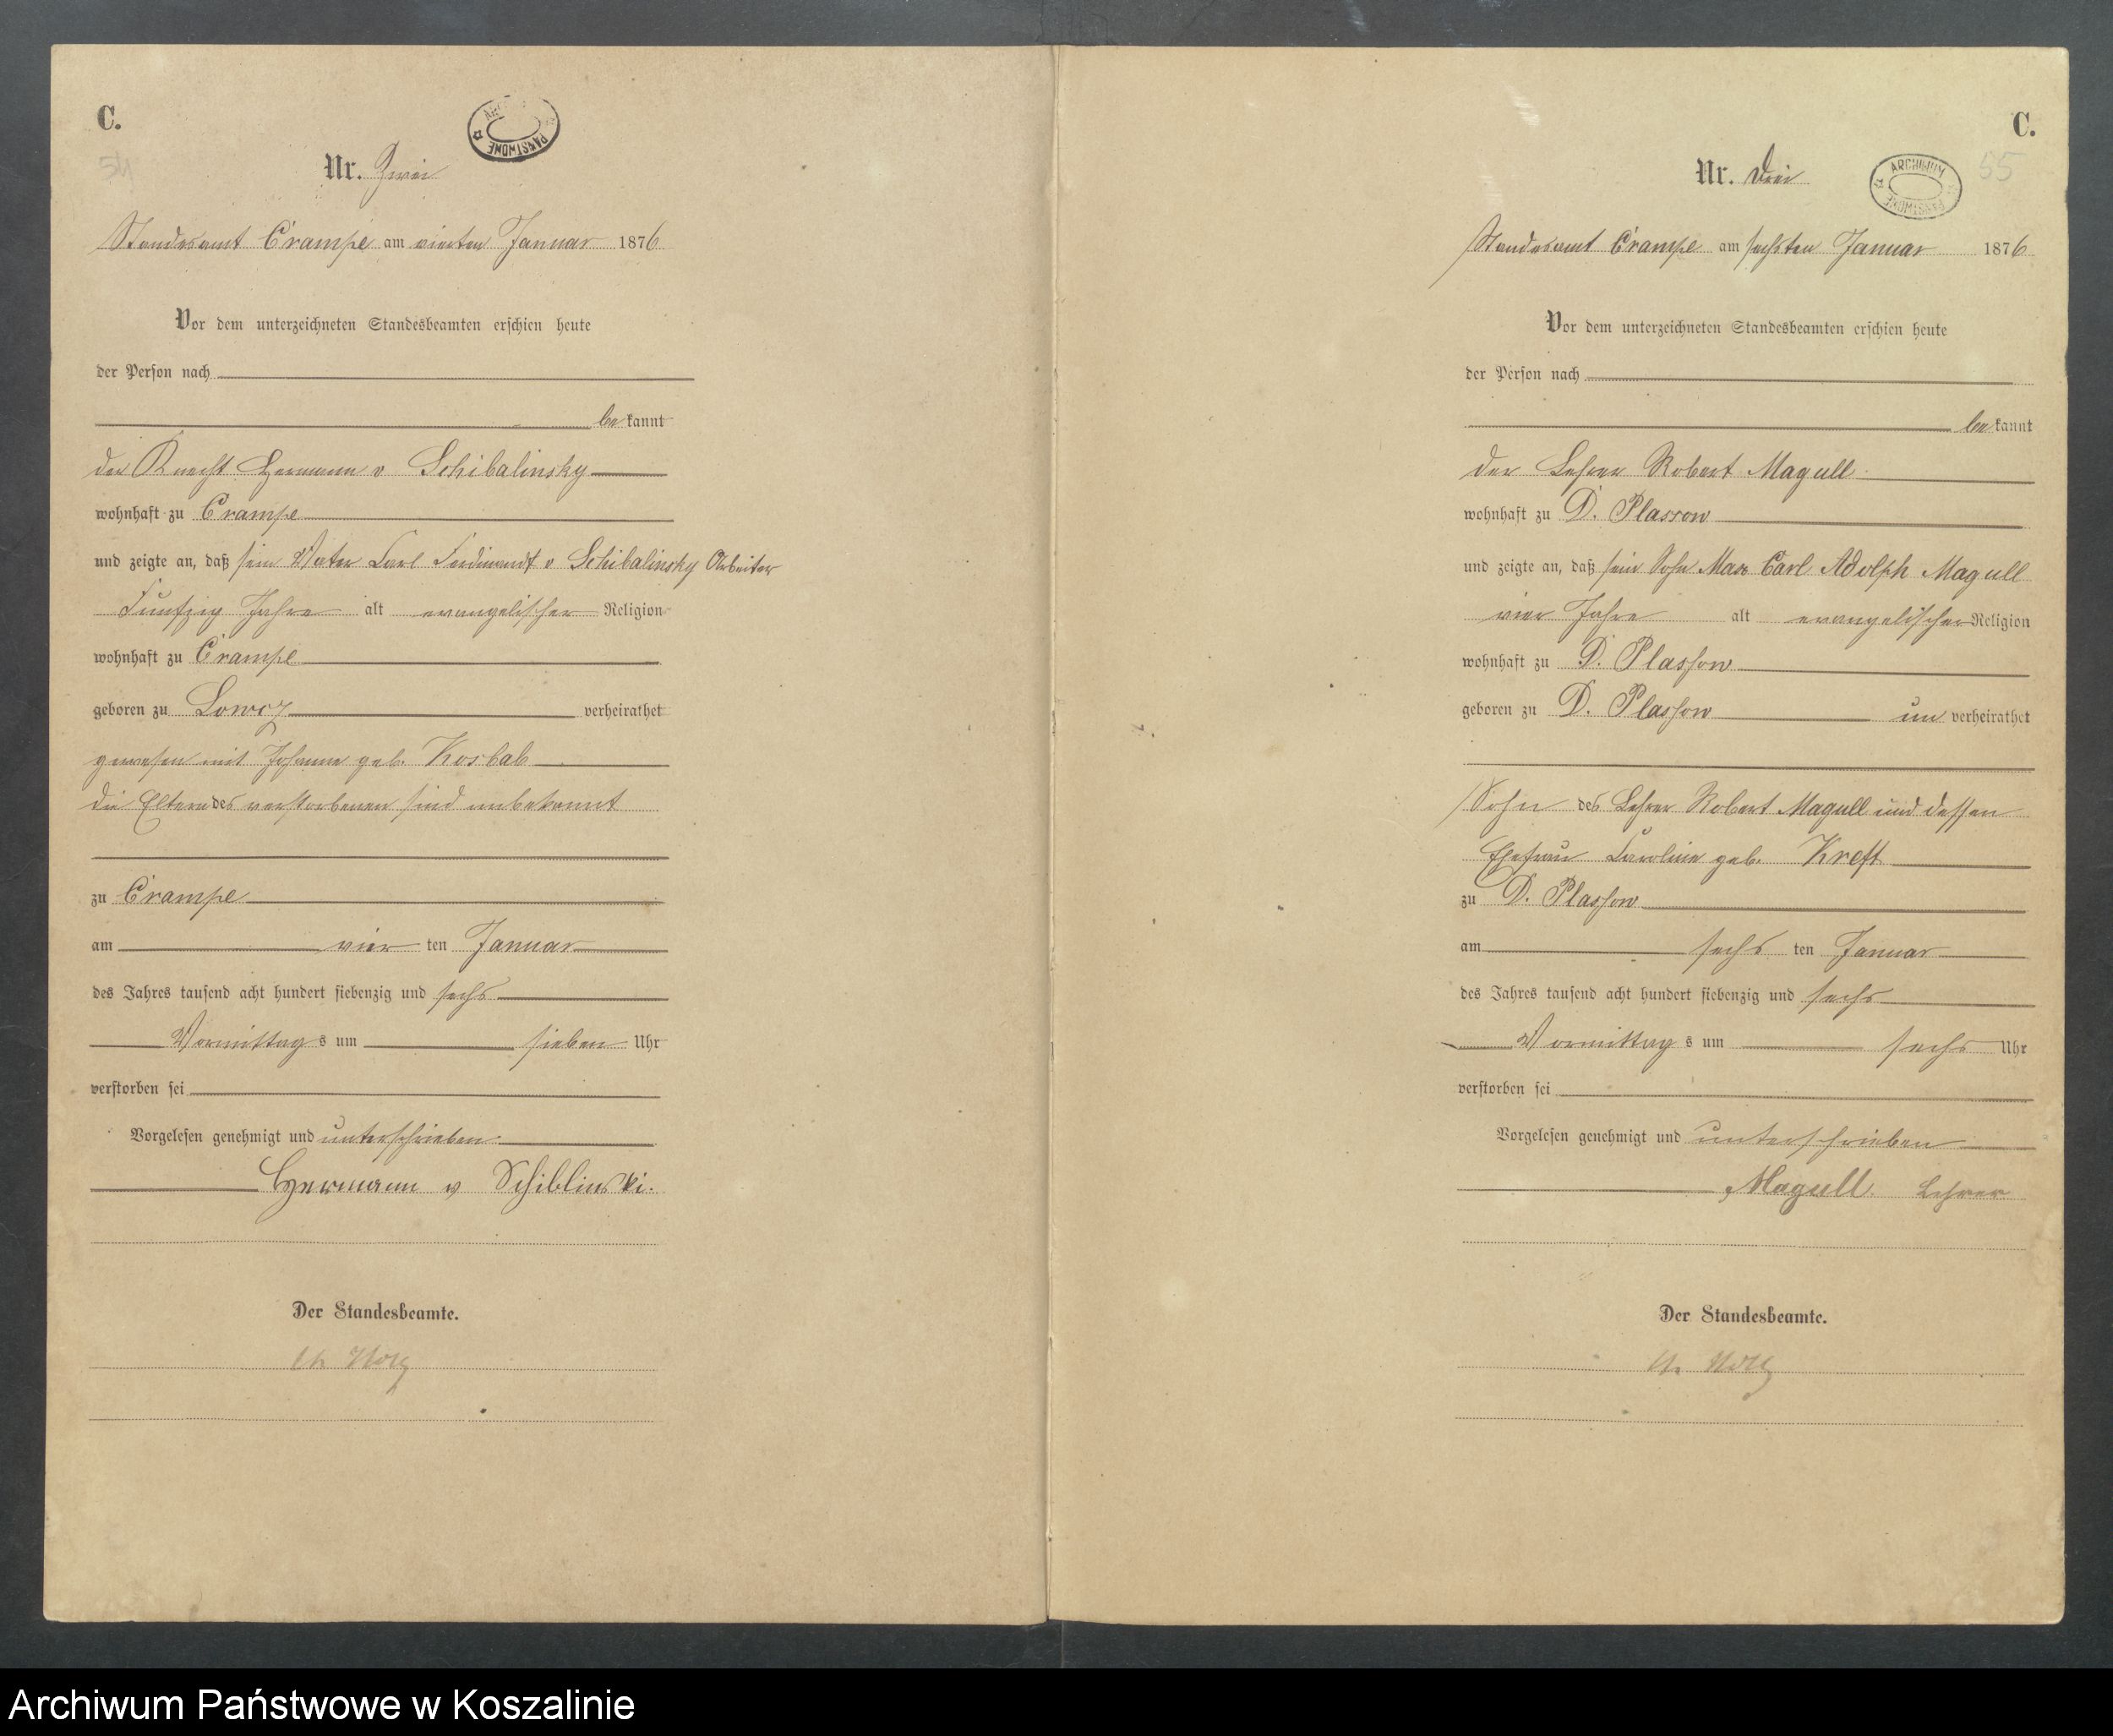 C.
54
ARCHIWUM PAŃSTWOWE
Nr. Zwei
Standesamt Crampe am vierten Januar 1876
Vor dem unterzeichneten Standesbeamten erschien heute
der Person nach
be kannt
der Knecht Hermann v Schibalinsky
wohnhaft zu Crampe
und zeigte an, daß sein Vater Carl Ferdinandt v Schibalinsky Arbeiter
Funfzig Jahre alt evangelischer Religion
wohnhaft zu Crampe
geboren zu Lowcz verheirathet
gewesen mit Johanne geb. Kosbab
die Eltern des verstorbenen sind unbekannt
zu Crampe
am vier ten Januar
des Jahres tausend acht hundert siebenzig und sechs
Vormittag s um sieben Uhr
verstorben sei
Vorgelesen genehmigt und unterschrieben
Hermann v Schiblinski.
Der Standesbeamte.
C.
55
ARCHIWUM PAŃSTWOWE
Nr. Drei
Standesamt Crampe am sechsten Januar 1876
Vor dem unterzeichneten Standesbeamten erschien heute
der Person nach
be kannt
der Lehrer Robert Magull
wohnhaft zu D. Plassow
und zeigte an, daß sein Sohn Max Carl Adolph Magull
vier Jahre alt evangelischer Religion
wohnhaft zu D. Plassow
geboren zu D. Plassow un verheirathet
Sohn des Lehrer Robert Magull und dessen
Ehefrau Caroline geb. Kreft
zu D. Plassow
am sechs ten Januar
des Jahres tausend acht hundert siebenzig und sechs
Vormittag s um sechs Uhr
verstorben sei
Vorgelesen genehmigt und unterschrieben
Magull. Lehrer
Der Standesbeamte.
Archiwum Państwowe w Koszalinie